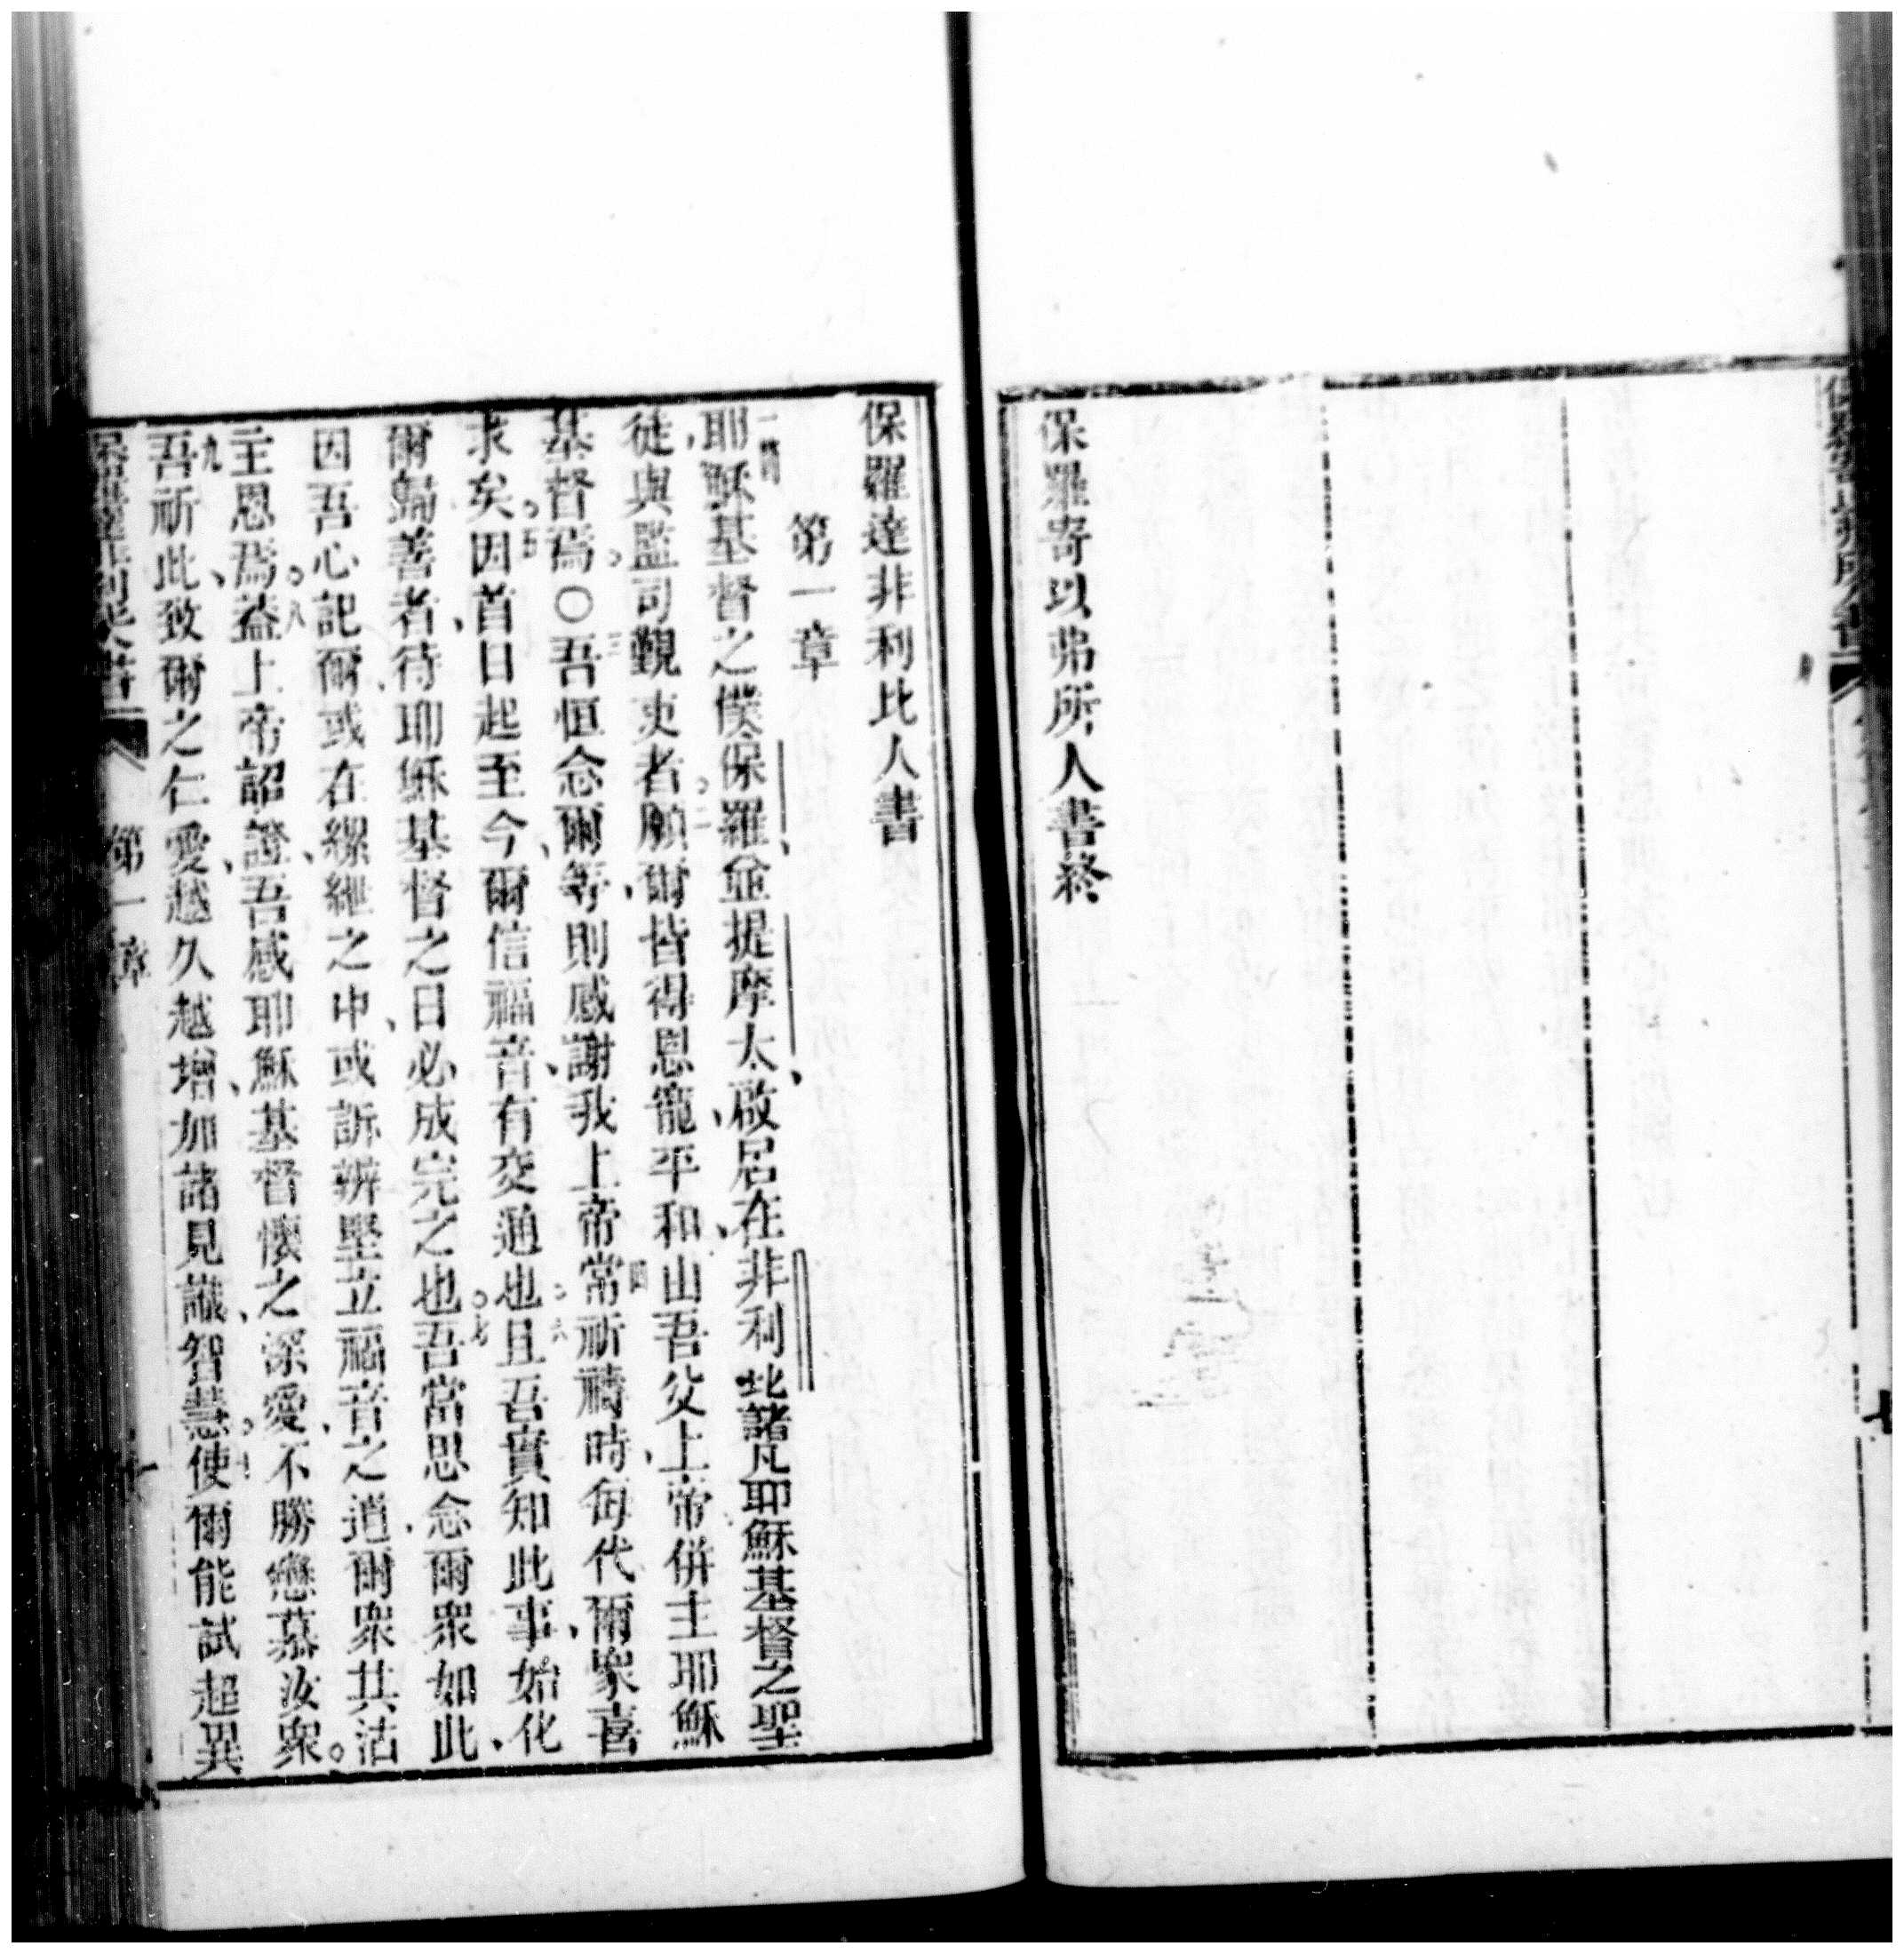 保羅寄以弗所人書終
保羅達非利比人書
第一章
一節耶穌基督之僕保羅並提摩太、啟居在非利比諸凡耶穌基督之聖
徒、與監司覲吏者。二願爾皆得恩寵、平和、由吾父上帝併主耶穌
基督焉。○三吾恒念爾等、則感謝我上帝、四常祈禱時、每代爾衆喜
求矣。五因首日起至今、爾信福音、有交通也。六且吾實知此事、始化
爾歸善者、待耶穌基督之日、必成完之也。七吾當思念爾衆如此、
因吾心記爾、或在縲絏之中、或訴辨堅立福音之道、爾衆共沾
主恩焉。八蓋上帝詔證、吾感耶穌基督懷之深愛、不勝戀慕汝衆。
九吾祈此、致爾之仁愛、越久越增、加諸見識、智慧。十使爾能試超異
第一章